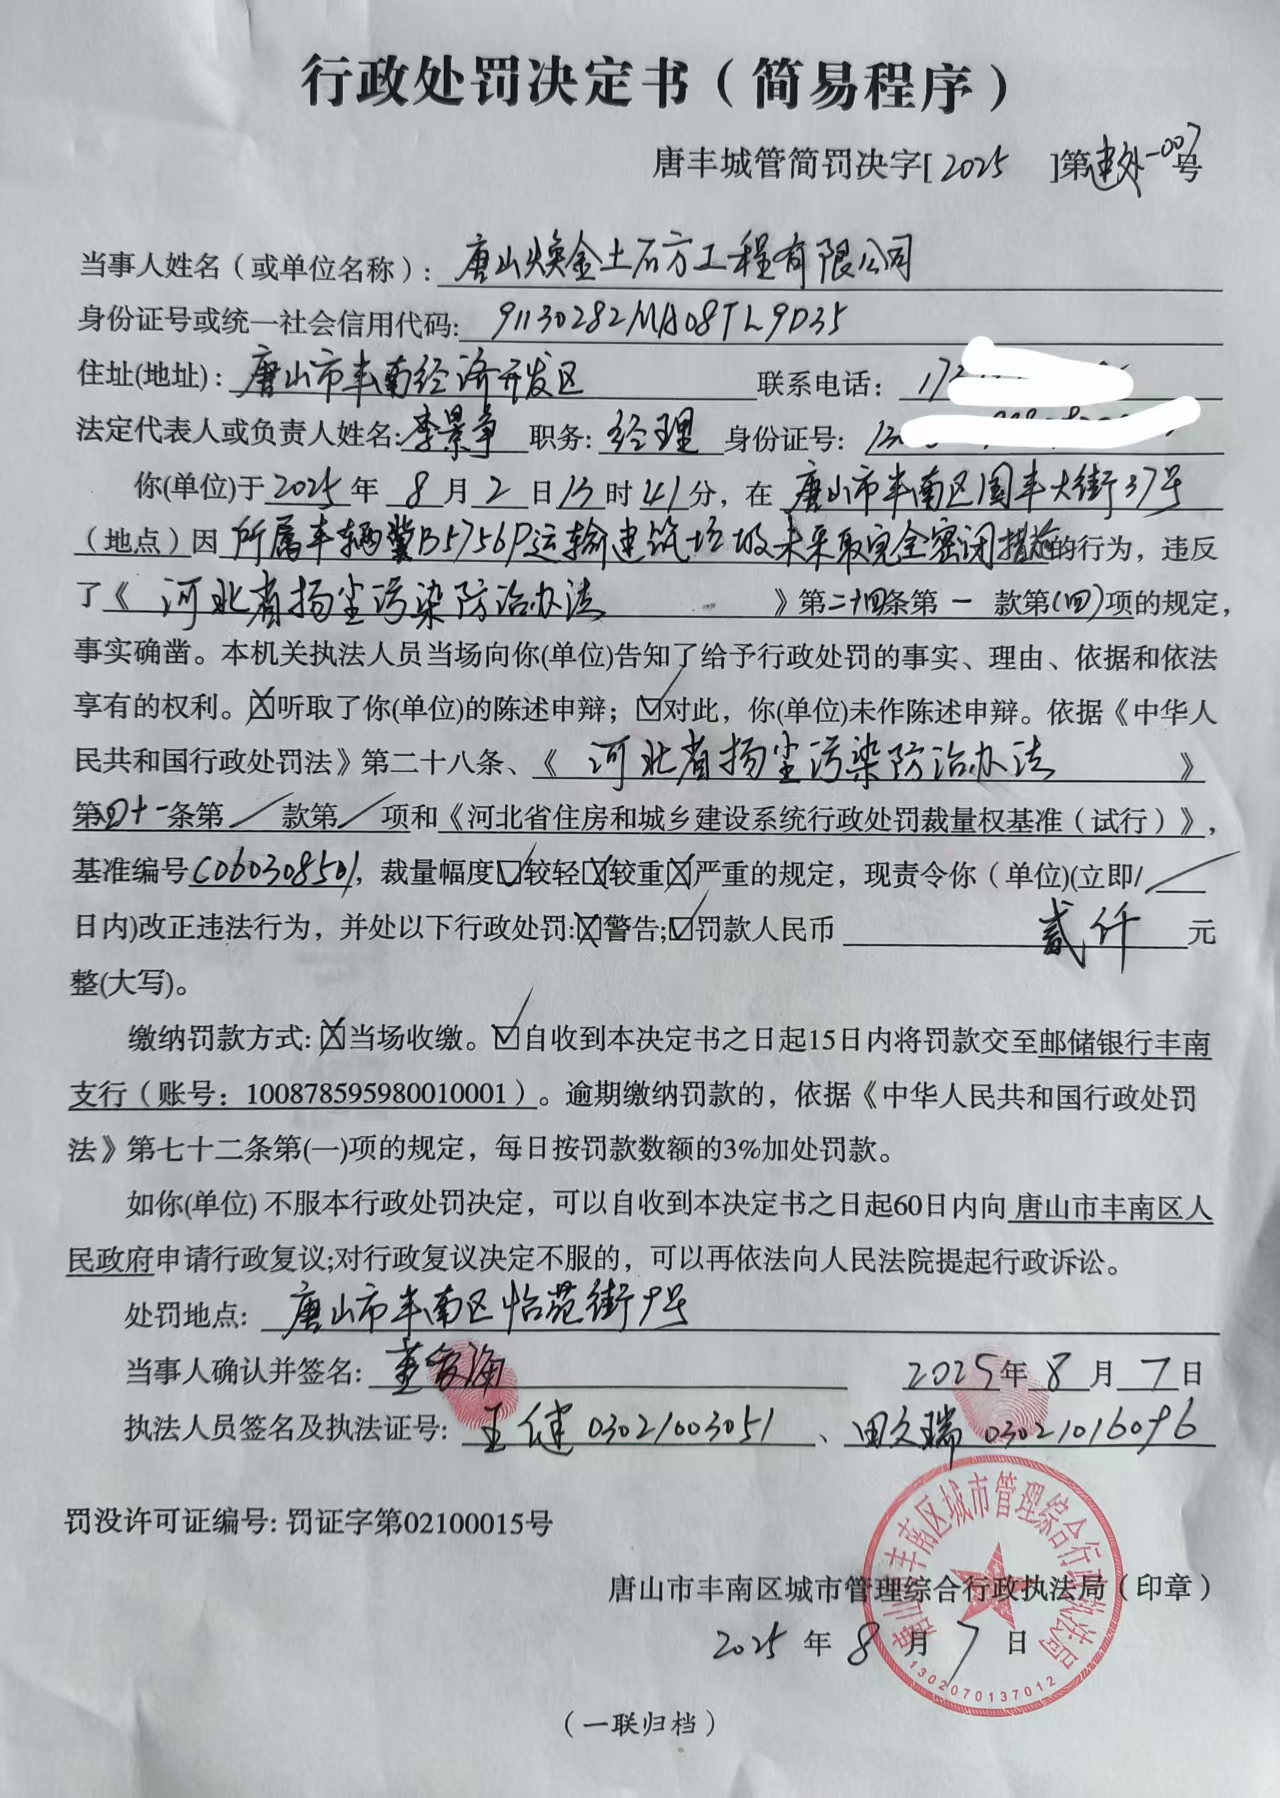 行政处罚决定书（简易程序）
唐丰城管简罚决字[2025]第建外-007号
当事人姓名（或单位名称）：唐山焕金土石方工程有限公司
身份证号或统一社会信用代码: 91130282MA08TL9D35
住址(地址)：唐山市丰南经济开发区 联系电话：
法定代表人或负责人姓名:李景争 职务: 经理 身份证号:
你(单位)于2025年8月2日13时41分，在唐山市丰南区国丰大街37号
（地点）因所属车辆冀B5756P运输建筑垃圾未采取完全密闭措施的行为，违反
了《河北省扬尘污染防治办法》第二十四条第一款第(四)项的规定，
事实确凿。本机关执法人员当场向你(单位)告知了给予行政处罚的事实、理由、依据和依法
享有的权利。☒听取了你(单位)的陈述申辩；☑对此，你(单位)未作陈述申辩。依据《中华人
民共和国行政处罚法》第二十八条、《河北省扬尘污染防治办法》
第四十一条第／款第／项和《河北省住房和城乡建设系统行政处罚裁量权基准（试行）》，
基准编号C060308501，裁量幅度☑较轻☒较重☒严重的规定，现责令你（单位)(立即/／
日内)改正违法行为，并处以下行政处罚:☒警告;☑罚款人民币贰仟元
整(大写)。
缴纳罚款方式:☒当场收缴。☑自收到本决定书之日起15日内将罚款交至邮储银行丰南
支行（账号：100878595980010001）。逾期缴纳罚款的，依据《中华人民共和国行政处罚
法》第七十二条第(一)项的规定，每日按罚款数额的3%加处罚款。
如你(单位) 不服本行政处罚决定，可以自收到本决定书之日起60日内向唐山市丰南区人
民政府申请行政复议;对行政复议决定不服的，可以再依法向人民法院提起行政诉讼。
处罚地点: 唐山市丰南区怡苑街9号
当事人确认并签名: 2025年8月7日
执法人员签名及执法证号: 王健 03021003051、田久瑞 03021016096
罚没许可证编号: 罚证字第02100015号
唐山市丰南区城市管理综合行政执法局（印章）
2025年8月7日
唐山市丰南区城市管理综合行政执法局
1302070137012
（一联归档）